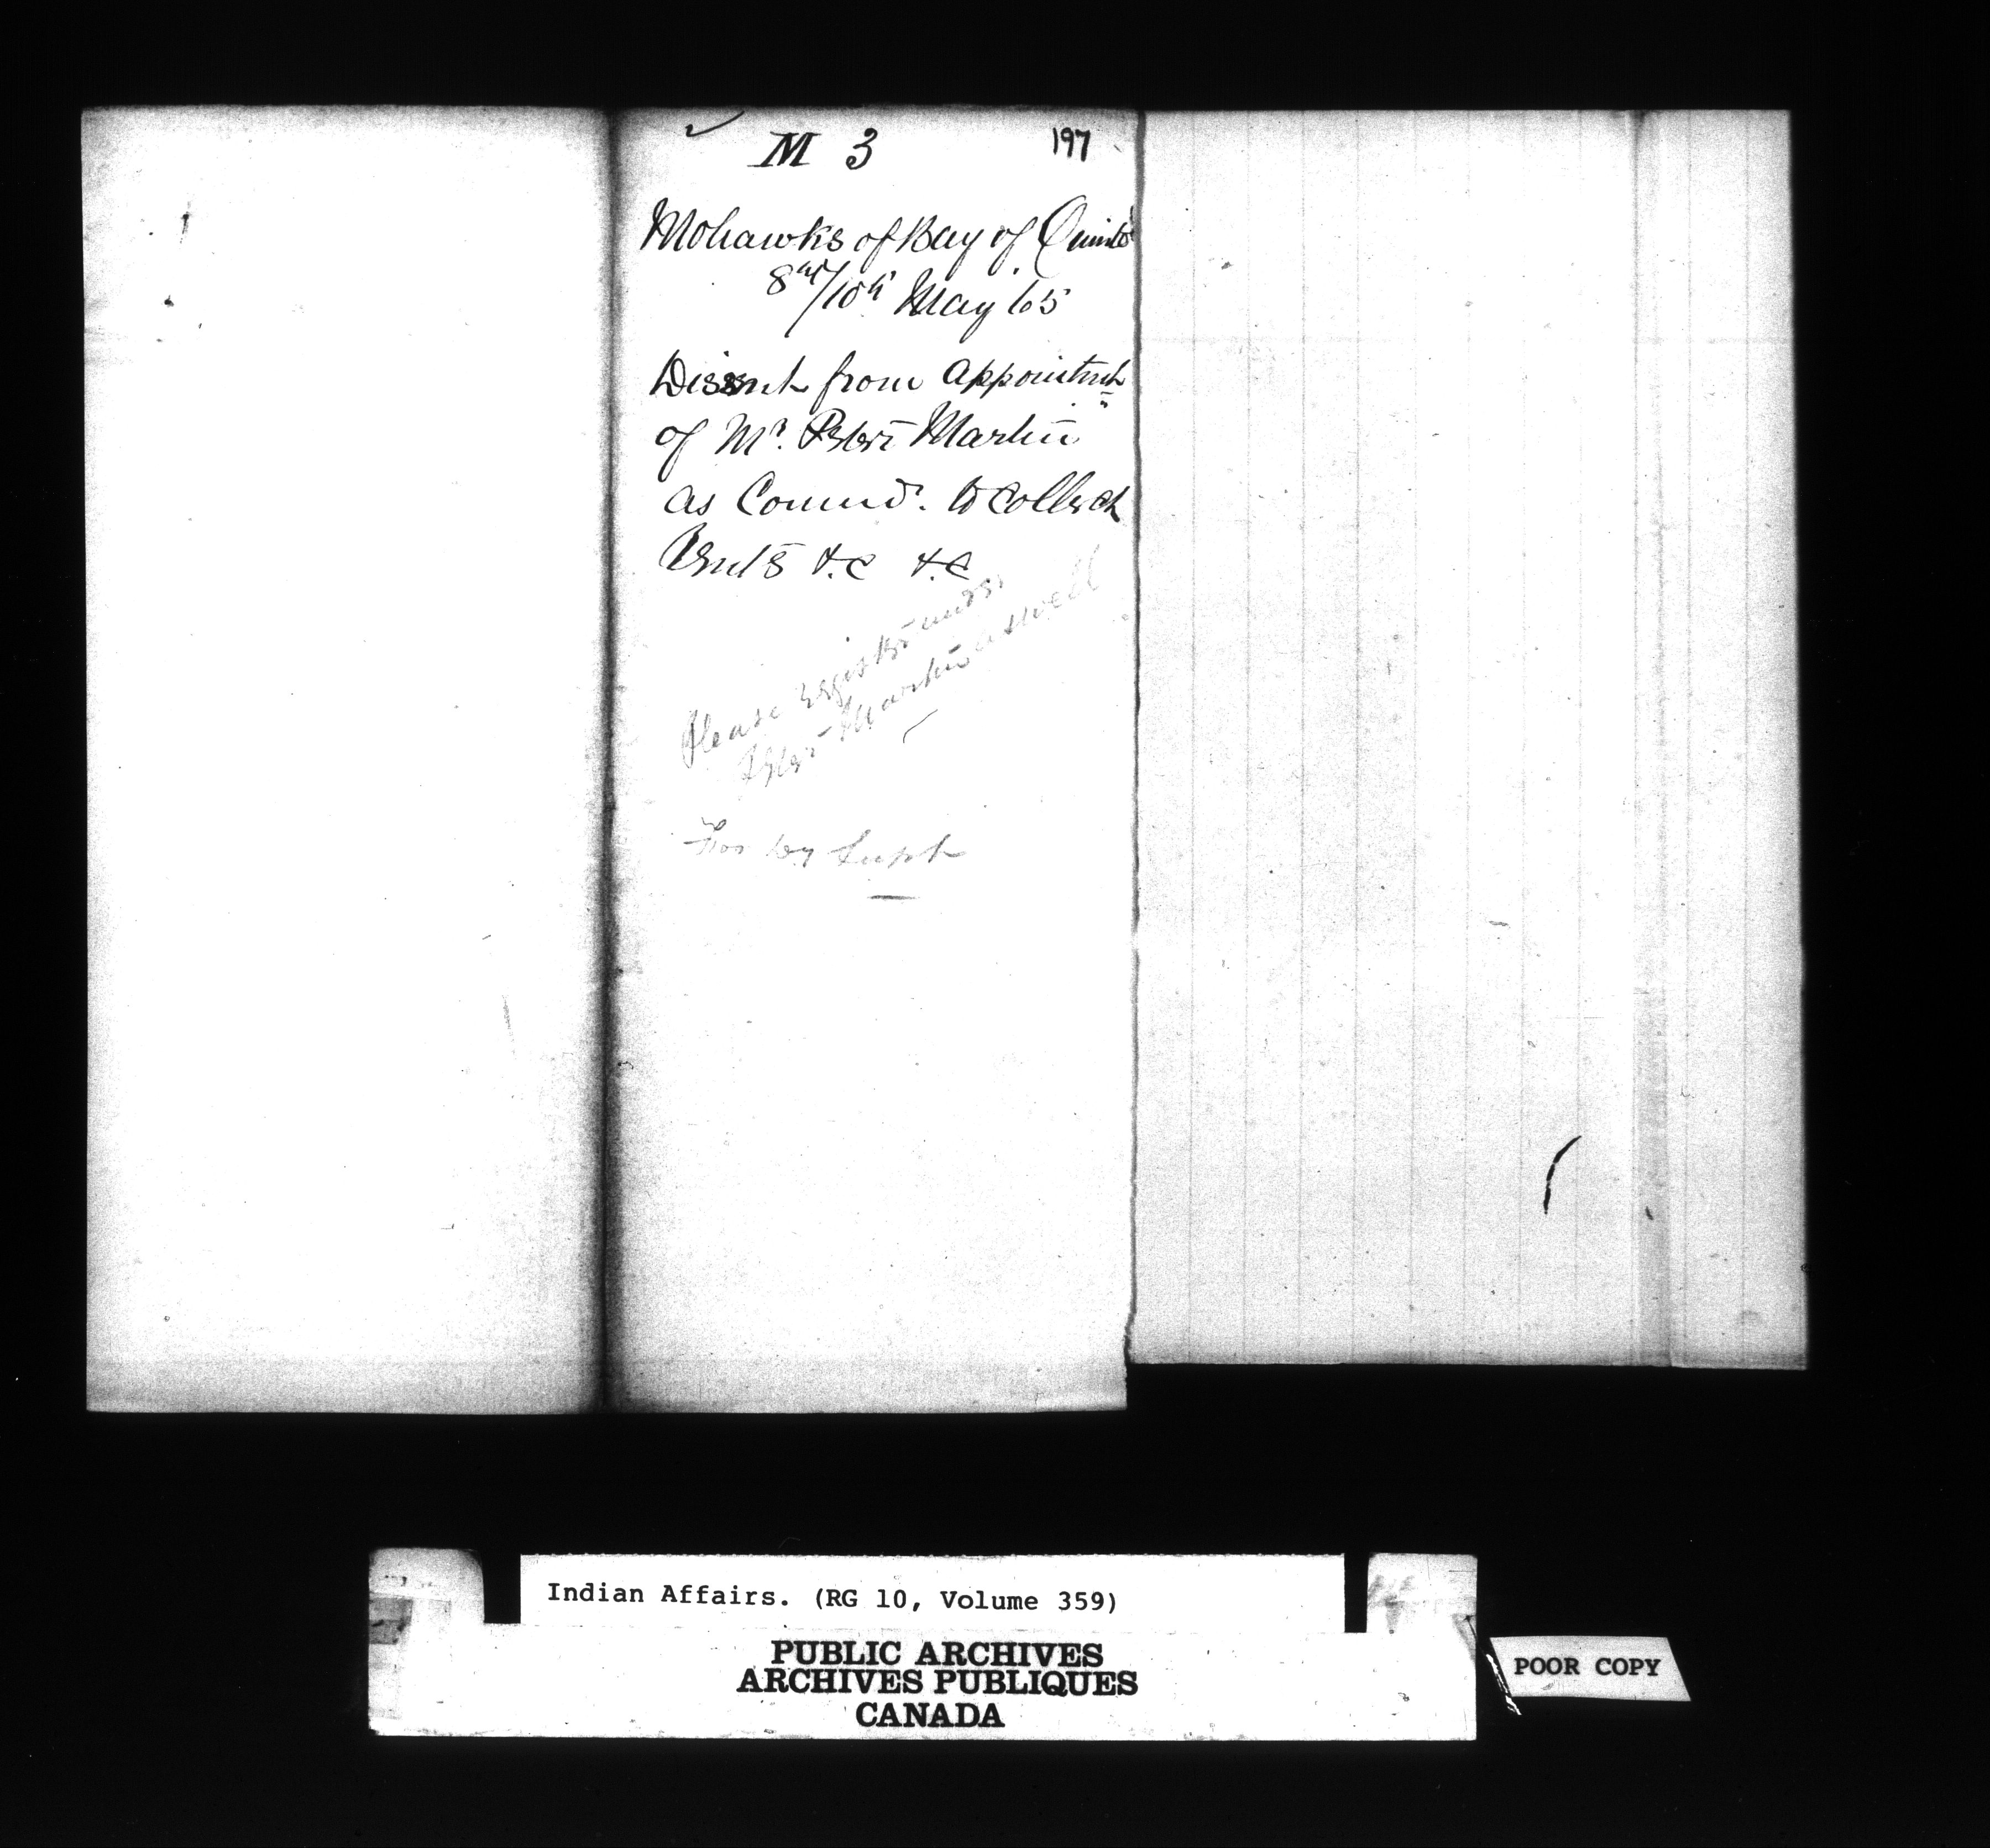 M 3 197
Mohawks of Bay of Quinté
8th/10th May 65
Dissent from Appointmt
of Mr. Peter Martin
as Commr. to collect
Rents &c &c
Please register under
Peter Martin as well
by Supt
Indian Affairs. (RG 10, Volume 359)
PUBLIC ARCHIVES
ARCHIVES PUBLIQUES
CANADA
POOR COPY